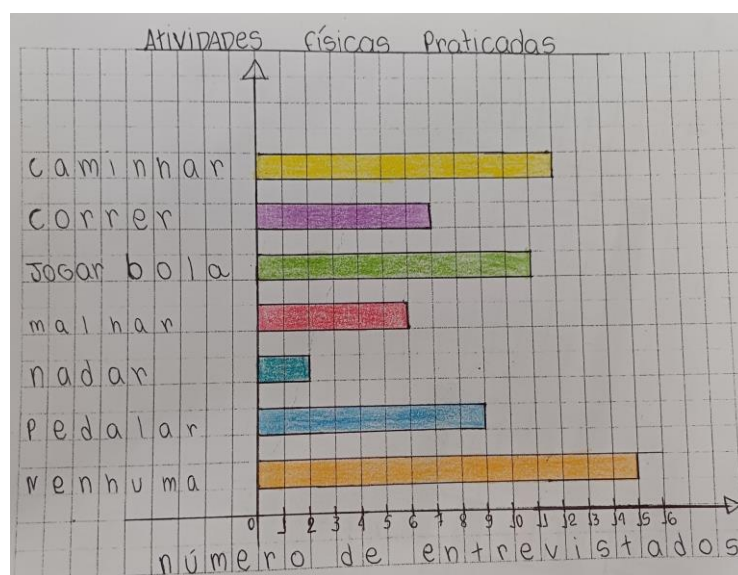 AtiviDADes físicas Praticadas
caminhar
correr
JoGar bola
malhar
nadar
Pedalar
Nenhuma
0 1 2 3 4 5 6 7 8 9 10 11 12 13 14 15 16
número de entrevistados